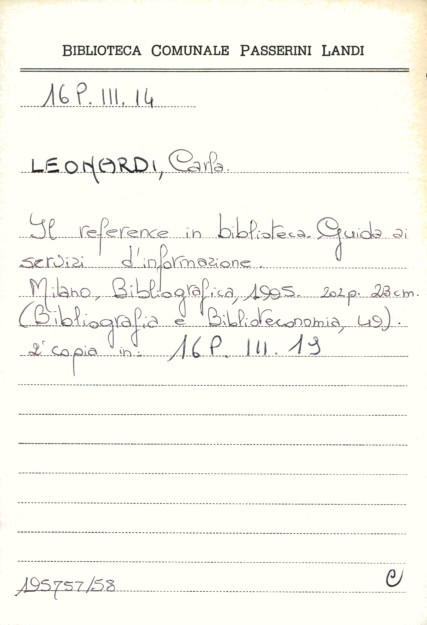 BIBLIOTECA COMUNALE PASSERINI LANDI
16 P. III. 14
LEONARDI, Carla.
Il reference in biblioteca. Guida ai
servizi d'informazione.
Milano, Bibliografica, 1995. 202p. 23cm.
(Bibliografia e Biblioteconomia, 49).
2ª copia in: 16 P. III. 19
195757/58
C